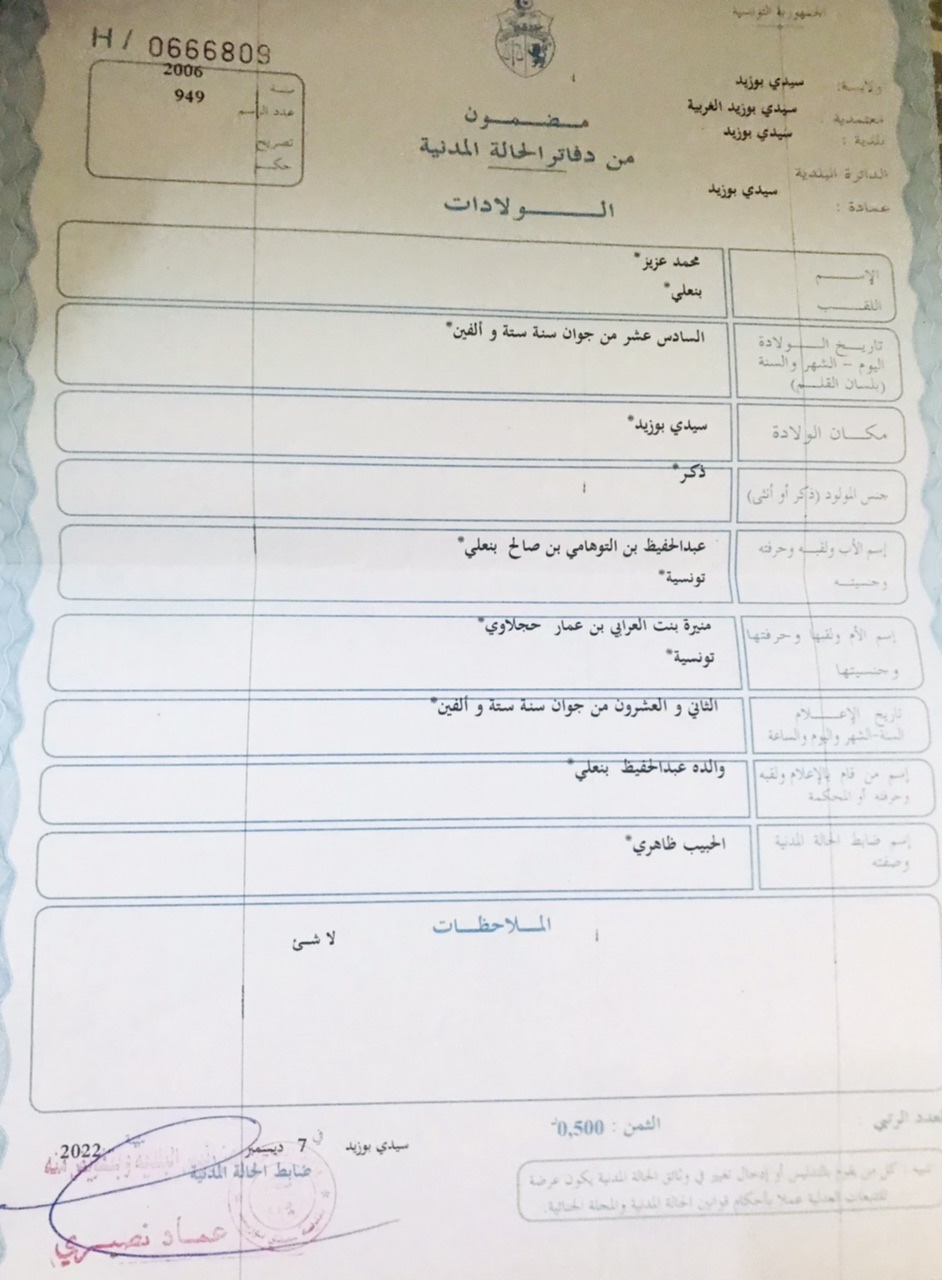 الجمهورية التونسية
H / 0666809
سنة 2006
عدد الرسم 949
تصريح
حكم
ولاية: سيدي بوزيد
معتمدية : سيدي بوزيد الغربية
بلدية : سيدي بوزيد
الدائرة البلدية
عمادة : سيدي بوزيد
مضمون
من دفاتر الحالة المدنية
الولادات
الإسم محمد عزيز*
اللقب بنعلي*
تاريخ الولادة
اليوم - الشهر والسنة
(بلسان القلم)
السادس عشر من جوان سنة ستة و ألفين*
مكان الولادة سيدي بوزيد*
جنس المولود (ذكر أو أنثى) ذكر*
إسم الأب ولقبه وحرفته
وجنسيته
عبدالحفيظ بن التوهامي بن صالح بنعلي*
تونسية*
إسم الأم ولقبها وحرفتها
وجنسيتها
منيرة بنت العرابي بن عمار حجلاوي*
تونسية*
تاريخ الإعلام
السنة-الشهر واليوم والساعة
الثاني و العشرون من جوان سنة ستة و ألفين*
إسم من قام بالإعلام ولقبه
وحرفته أو المحكمة
والده عبدالحفيظ بنعلي*
إسم ضابط الحالة المدنية
وصفته
الحبيب ظاهري*
الملاحظات
لا شئ
العدد الرتبي :
الثمن : 0,500د
سيدي بوزيد في 7 ديسمبر 2022
ضابط الحالة المدنية
عماد نصيري
تنبيه : كل من يقوم بالتدليس أو إدخال تغيير في وثائق الحالة المدنية يكون عرضة
للتتبعات العدلية عملا بأحكام قوانين الحالة المدنية والمجلة الجنائية.